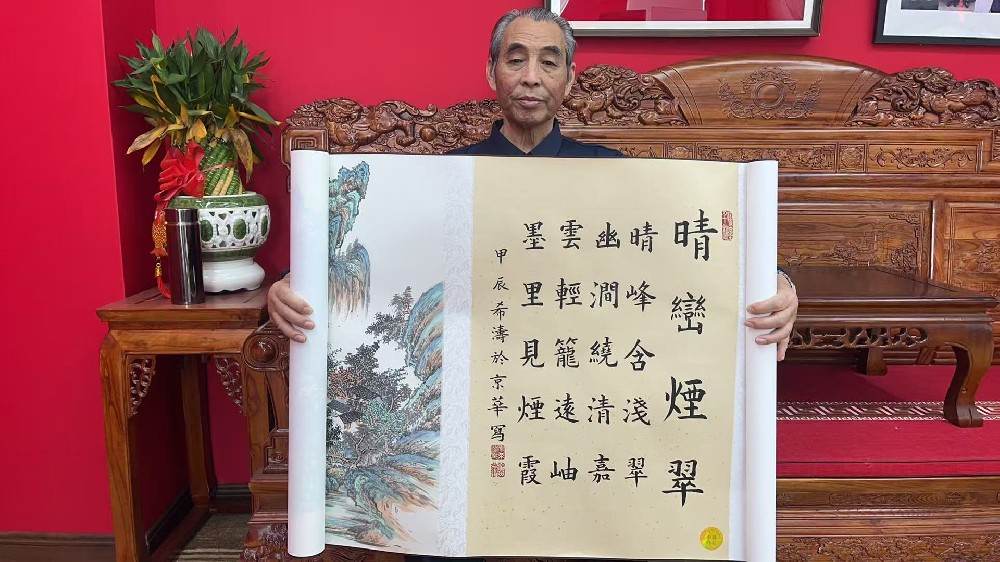 晴巒煙翠
晴峰含淺翠
幽澗繞清嘉
雲輕籠遠岫
墨里見煙霞
甲辰希濤於京華寫